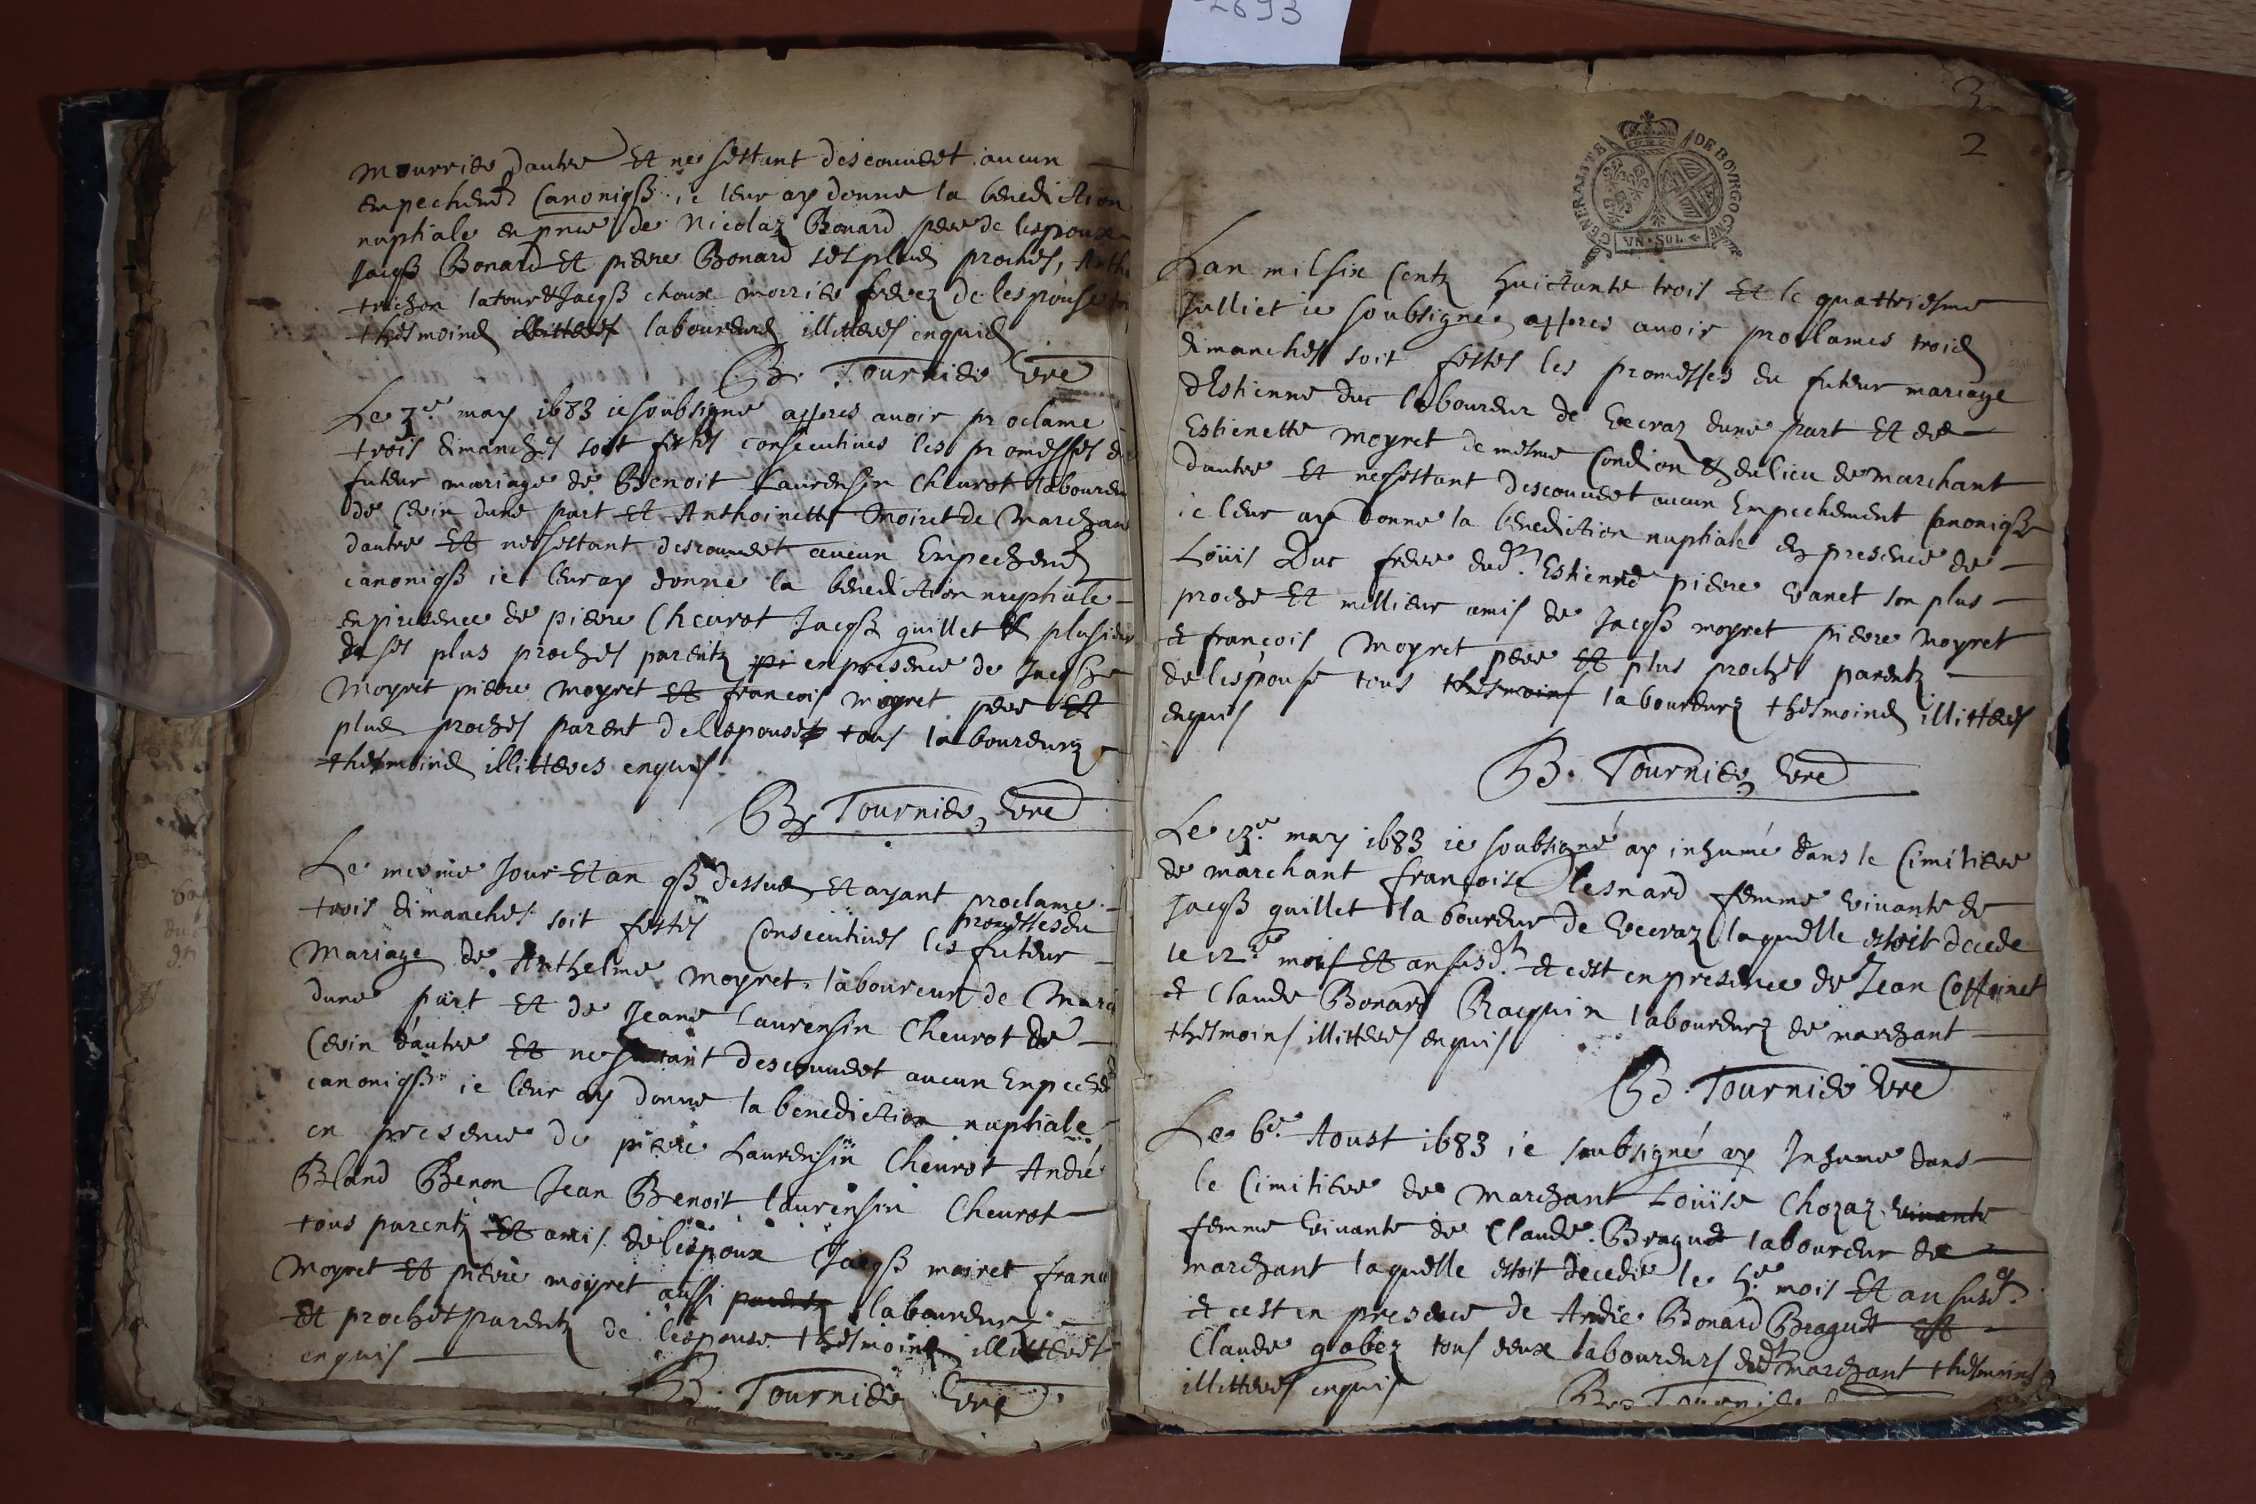 mourrier dautre Et ne sestant descouuert aucun
empechemt Canoniqs ie leur ay donne la benediction
nuptiale en pnce de Nicolaz Bonard pere de lespoux
Jacqs Bonard Et pierre Bonard ses plus proches,
latour & Jacqs choux morrier freres de lespouse
thesmoins laboureurs illitteres enquis
B. Tournier Vre
Le 3e may 1683 ie soubsigne appres auoir proclame
trois dimanches soit festes consecutiues les promesses du
futeur mariage de Benoit Laurensin Cheurot laboureur
de Cerin dune part Et Anthoinette Moiret de Marchant
dautre Et ne sestant descouuert aucun Empechemt
canoniqs ie leur ay donne la benediction nuptiale
en presence de pierre Cheurot Jacqs guillet & plusieurs
de ses plus proches parentz en presence de Jacqs
Moyret pierre moyret Et francois moyret pere Et
plus proches parent de lespouse tous laboureurz
thesmoins illitteres enquis
B. Tournier Vre
Le mesme Jour Et an qs dessus Et ayant proclame
trois dimanches soit festes Consecutiues les promesses du futeur
Mariage de Anthelme Moyret laboureur de Marc
dune part Et de Jeane Laurensin Cheurot de
Cerin dautre Et ne sestant descouuert aucun Enpechet
canoniqs ie leur ay donne la benediction nuptiale
en presence de pierre Laurensin Cheurot André
Bland Benon Jean Benoit laurensin Cheurot
tous parentz Et amis de lespoux Jacqs moiret franc
Moyret Et pierre moyret aussi parentz laboureurz
Et proches parentz de lespouse thesmoins illitteres
enquis
B. Tournier Vre
2693
3
2
GENERALITE DE BOURGOGNE
VN SOL
Lan mil six Centz huictante trois Et le quattriesme
Julliet ie soubsigne appres auoir proclames trois
dimanches soit festes les promesses du futeur mariage
dEstienne duc laboureur de Vecraz dune part Et de
Estienette moyret de mesme Condion & du lieu de marchant
dautre Et ne sestant descouuert aucun Empechement Canoniqs
ie leur ay donne la benediction nuptiale en presence de
Loüis Duc frere dudt Estienne pierre Vanet son plus
proche Et millieur amis de Jacqs moyret pierre moyret
& françois Moyret pere Et plus proche parentz
de lespouse tous thesmoins laboureurz thesmoins illitteres
enquis
B. Tournier Vre
Le 13e may 1683 ie soubsigné ay inhumé dans le Cimitiere
de marchant françoise lesnard femme viuante de
Jacqs guillet laboureur de Vecraz laquelle estoit decede
le 12e mois Et an susdt & cest en presence de Jean Coffinet
& Claude Bonard Bracquin laboureurz de marchant
thesmoins illitteres enquis
B. Tournier Vre
Le 6e Aoust 1683 ie soubsigné ay Inhume dans
le Cimitiere de Marchant Loüise Chozaz viuante
femme Viuante de Claude Braguet laboureur de
marchant laquelle estoit decedee le 5e mois Et an susdt
& cest en presence de Andre Bonard Braguet Et
Claude gobez tous deux laboureurs dudt marchant thesmoins
illitteres enquis
B. Tournier